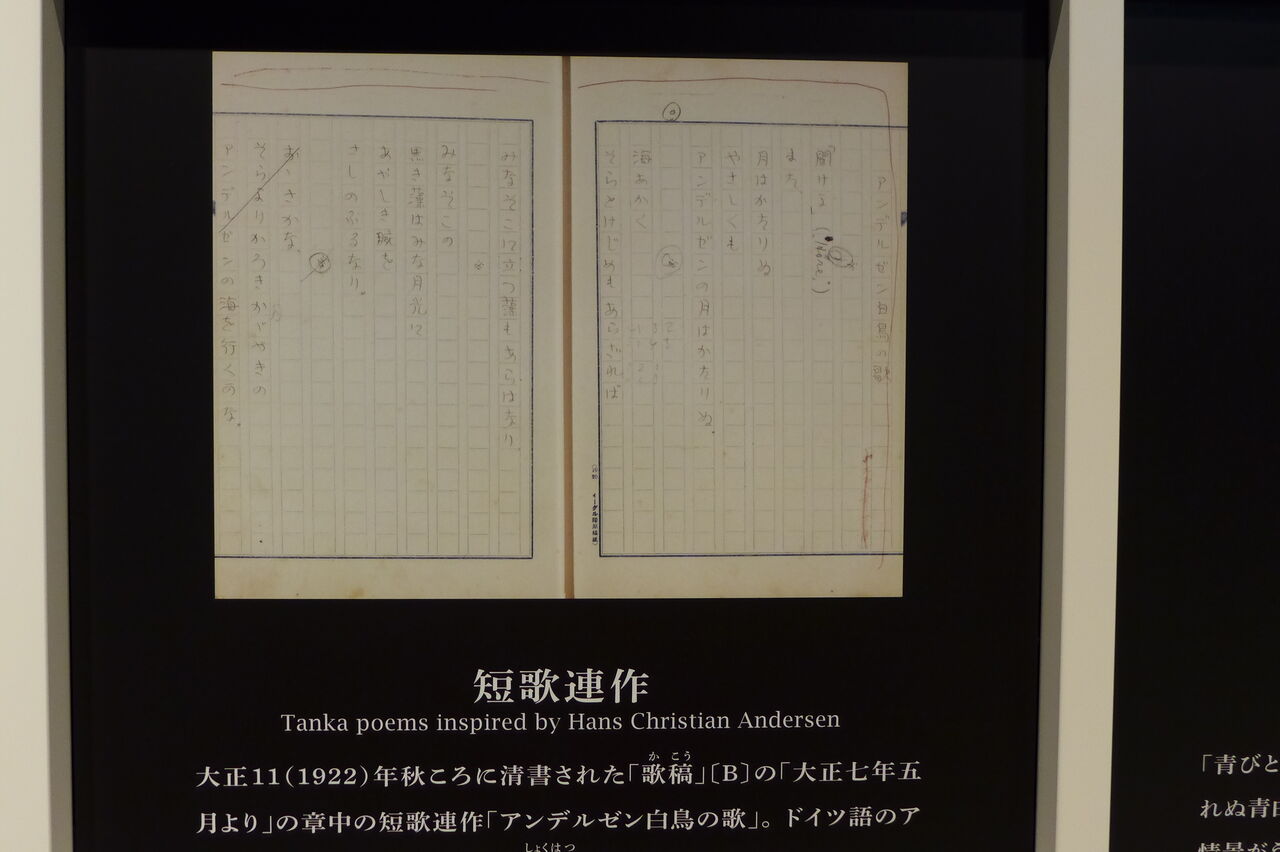 アンデルゼン白鳥の歌
「聞けよ」(„Höre,“)
また、
月はかたりぬ
やさしくも
アンデルゼンの月はかたりぬ。
海あかく
そらとけじめもあらざれば
みなそこに立つ藻もあらはなり
みなそこの
黒き藻はみな月光に
あやしき腕を
さしのぶるなり。
おゝさかな、
そらよりかろきかゞやきの
アンデルゼンの海を行くかな。
短歌連作
Tanka poems inspired by Hans Christian Andersen
大正11(1922)年秋ころに清書された「歌稿」〔B〕の「大正七年五
月より」の章中の短歌連作「アンデルゼン白鳥の歌」。ドイツ語のア
「青びと
れぬ青